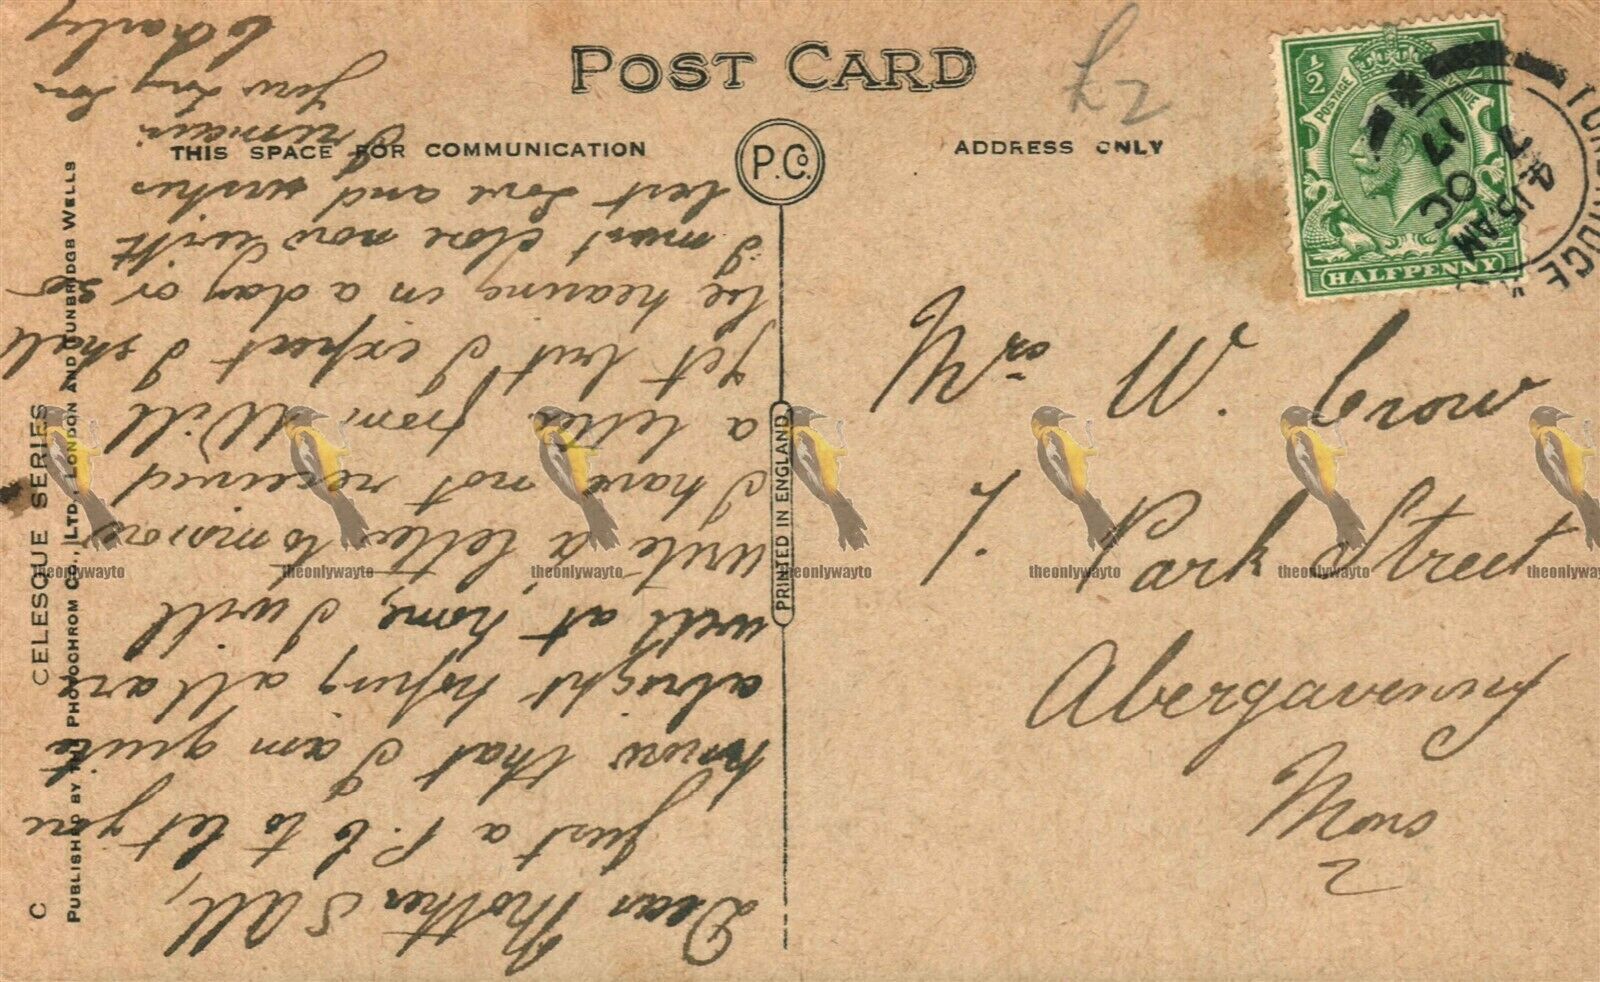 POST CARD
£2
THIS SPACE FOR COMMUNICATION
P.Co.
ADDRESS ONLY
½
POSTAGE
HALFPENNY
TONBRIDGE
4.15 AM
OC
17
Mrs W. Crow
7. Park Street
Abergavenny
Mons
2
PRINTED IN ENGLAND
C CELESQUE SERIES
PUBLISHED BY THE PHOTOCHROM CO., LTD., LONDON AND TUNBRIDGE WELLS
Dear Mother & All,
Just a P.C to let you
know that I am quite
alright hoping all are
well at home, I will
write a letter to morrow
I have not received
a letter from Will
yet but I expect I shall
be hearing in a day or so
I must close now with
best love and wishes
I remain
Your Loving Son
Charley
theonlywayto
theonlywayto
theonlywayto
theonlywayto
theonlywayto
theonlywayto
theonlywayto